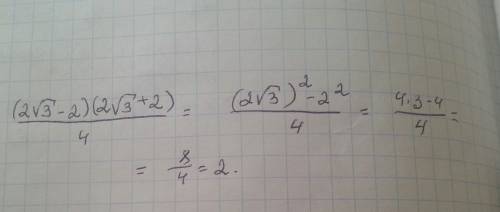 (2√3 - 2)(2√3 + 2)/4 = ((2√3)² - 2²)/4 = (4·3-4)/4 =
= 8/4 = 2.